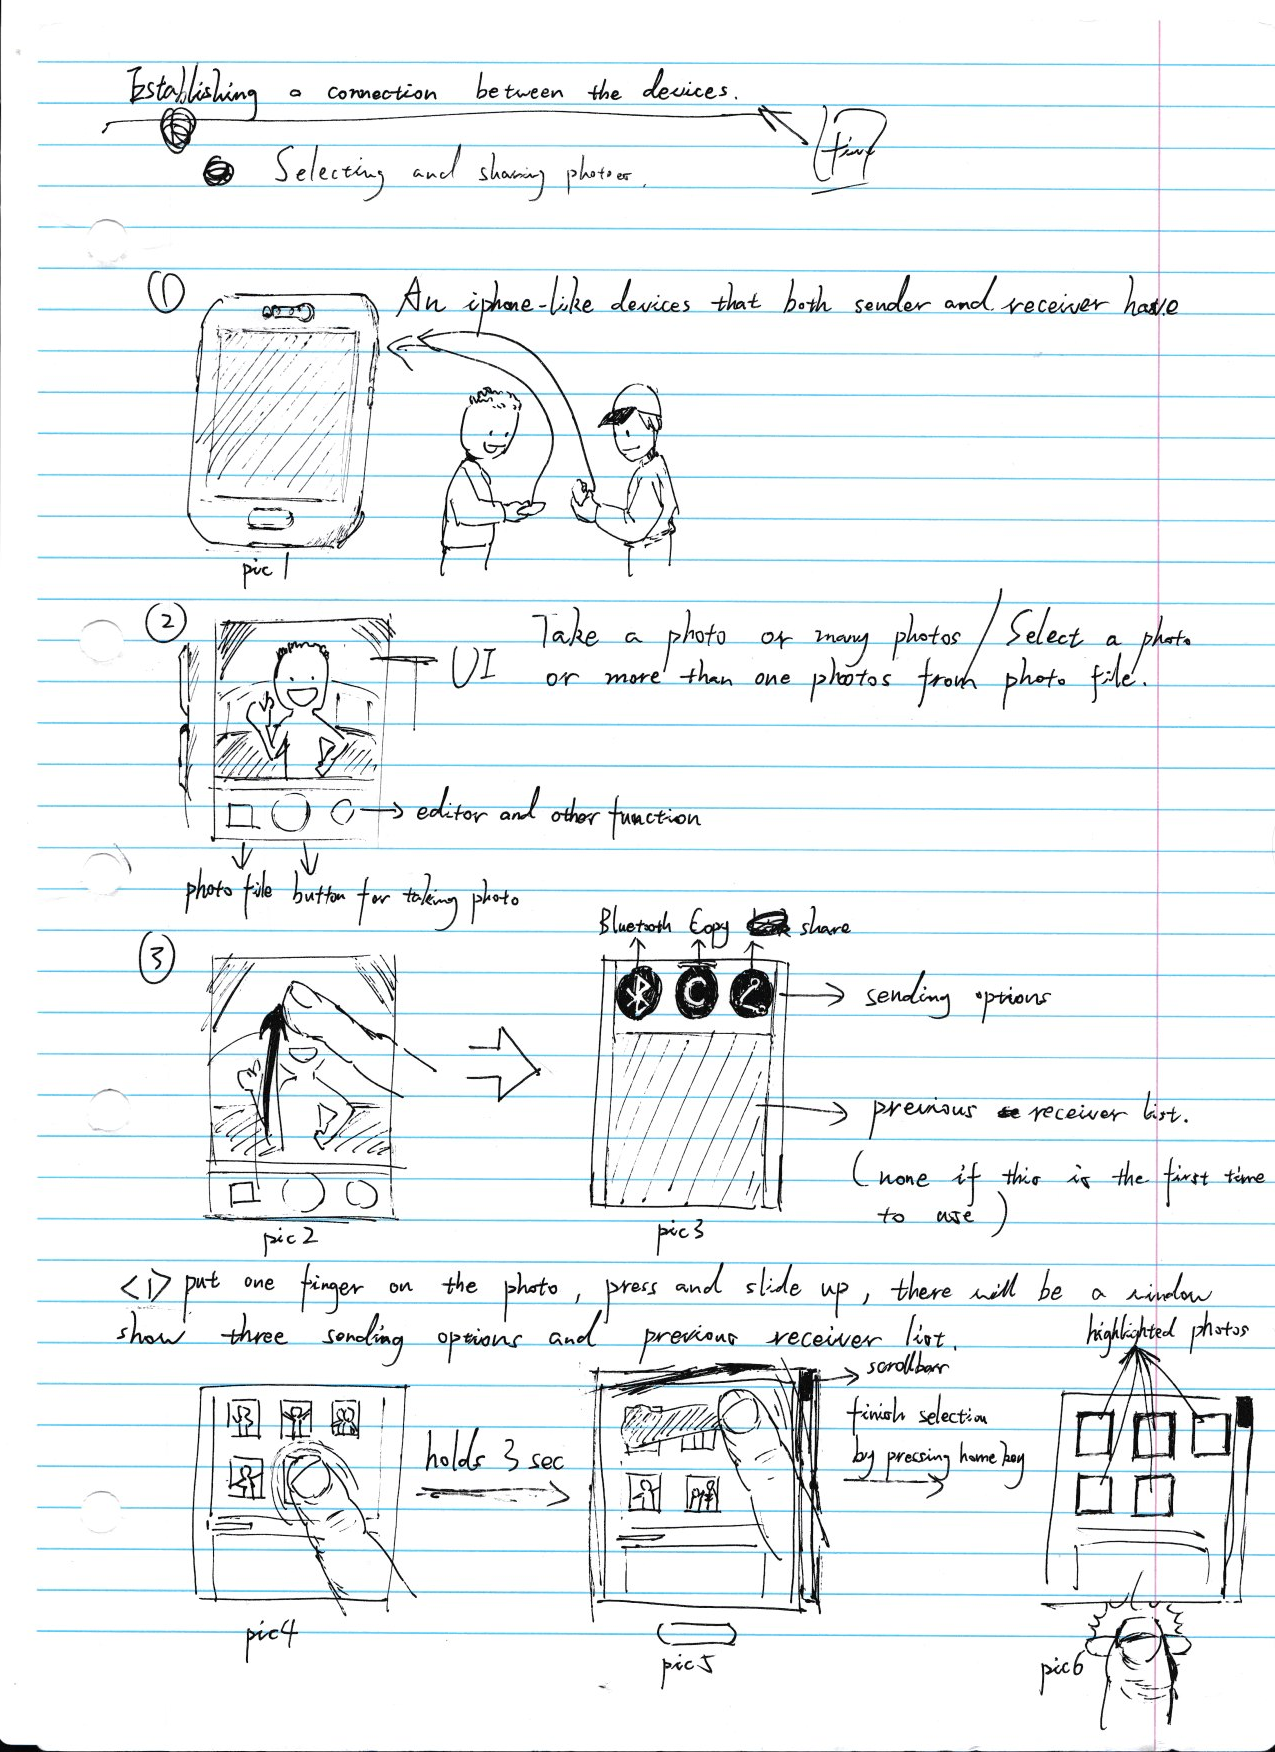 Establishing a connection between the devices.
Selecting and sharing photoes.
① An iphone-like devices that both sender and receiver have
pic 1
② Take a photo or many photos / Select a photo
or more than one photos from photo file.
UI
editor and other function
photo file button for taking photo
③
Bluetooth Copy share
C
sending options
previous receiver list.
(none if this is the first time
to use)
pic 2
pic 3
<1> put one finger on the photo, press and slide up, there will be a window
show three sending options and previous receiver list.
highlighted photos
scrollbar
holds 3 sec
finish selection
by pressing home key
pic4
pic5
pic6